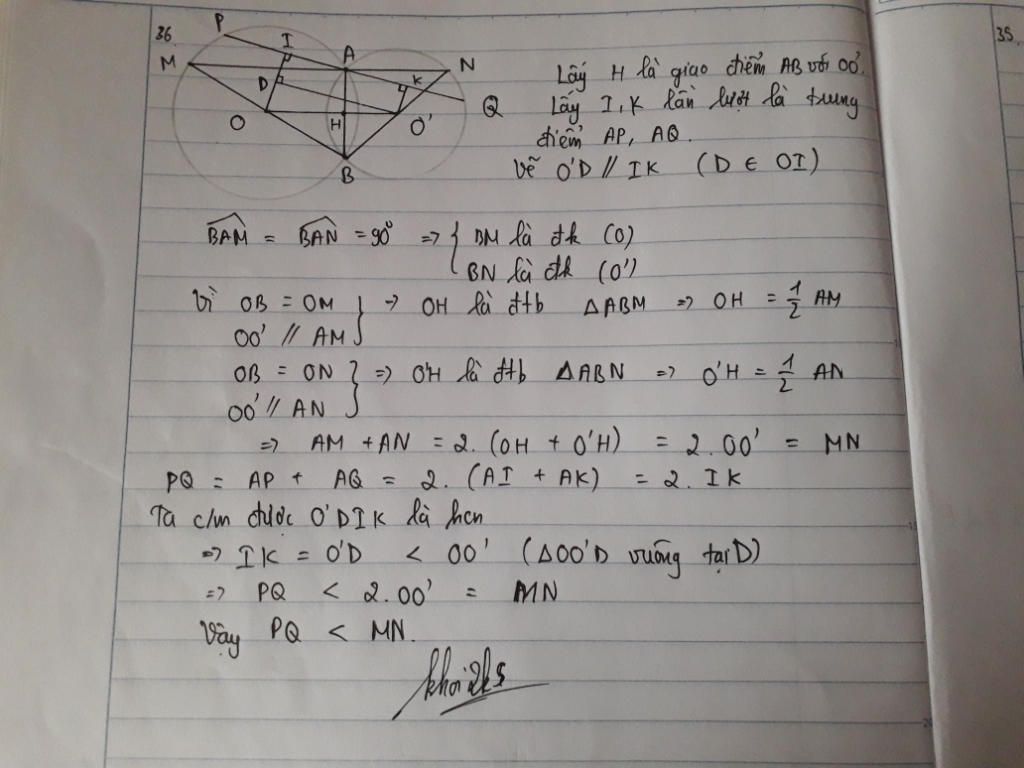 36.
35.
P
I
M
A
N
D
K
Q
O
H
O'
B
Lấy H là giao điểm AB với OO'.
Lấy I, K lần lượt là trung
điểm AP, AQ.
Vẽ O'D // IK (D ∈ OI)
BAM = BAN = 90° => { BM là đk (O)
BN là đk (O')
Vì OB = OM } -> OH là đtb ΔABM => OH = 1/2 AM
OO' // AM
OB = ON } => O'H là đtb ΔABN => O'H = 1/2 AN
OO' // AN
=> AM + AN = 2. (OH + O'H) = 2.OO' = MN
PQ = AP + AQ = 2. (AI + AK) = 2. IK
Ta c/m được O'DIK là hcn
=> IK = O'D < OO' (ΔOO'D vuông tại D)
=> PQ < 2.OO' = MN
Vậy PQ < MN.
khoi2k5